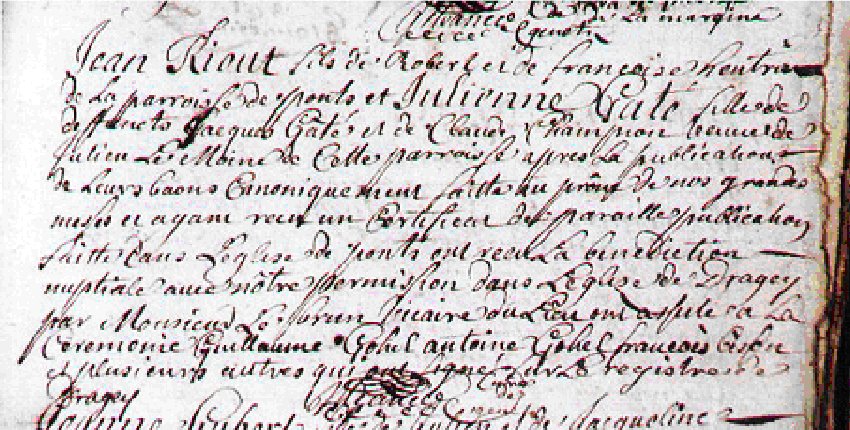 de la marqine
Jean Riout fils de Robert et de francoise hentra
de la parroisse de ponts et Julienne Gaté fille de
deffuncts Jacques Gâtés et de Claude Champion veuve de
Julien Le Moine de Cette parroisse apres la publication
de leurs bans Canoniquement faitte au prône de nos grandes
messes et ayant receu un Certificat de pareille publication
faitte dans L'eglise de ponts ont receu La benediction
nuptiale avec nôtre permission dans L'eglise de Dragey
par Monsieur Le brun Vicaire du Lieu ont assisté a La
Ceremonie Guillaume Gohel antoine Gohel francois
et plusieurs autres qui ont signé sur le registre de
Dragey
Jeanne fille de Julien et de Jacqueline